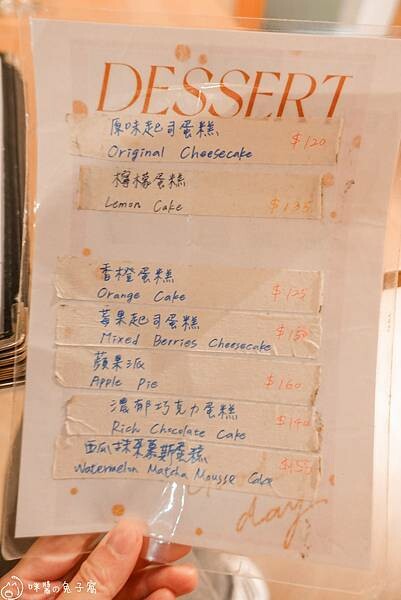 DESSERT
原味起司蛋糕 $120
Original Cheesecake
檸檬蛋糕
Lemon Cake $135
香橙蛋糕
Orange Cake $125
莓果起司蛋糕
Mixed Berries Cheesecake
蘋果派
Apple Pie $160
濃郁巧克力蛋糕
Rich Chocolate Cake $140
西瓜抹茶慕斯蛋糕
Watermelon Matcha Mousse Cake $155
day
咪醬の兔子窩